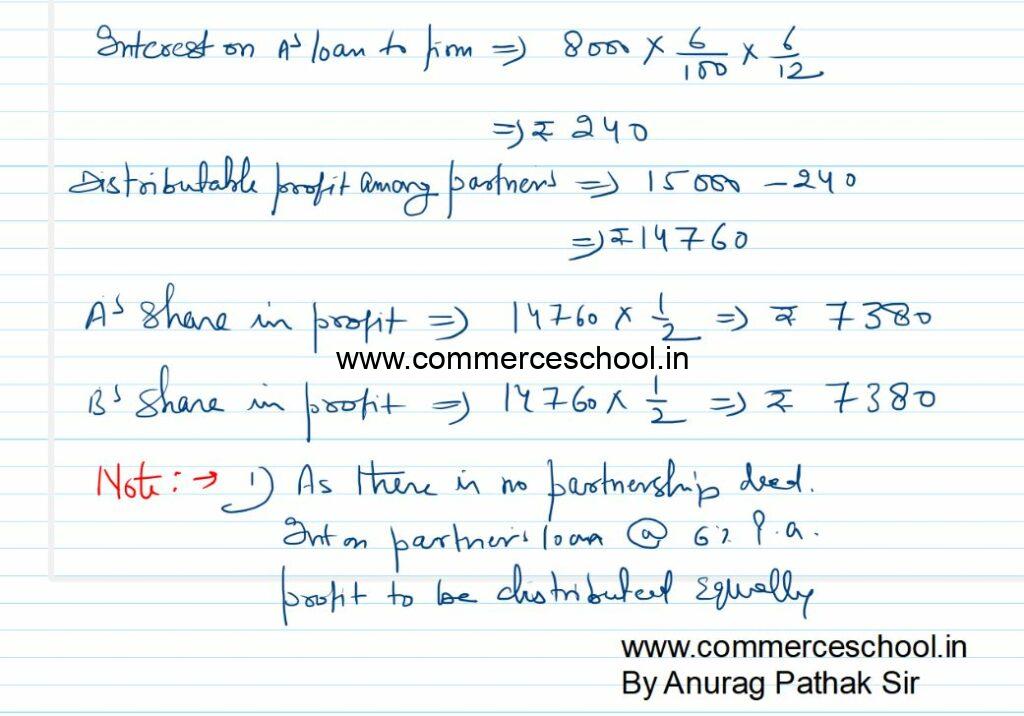 Interest on A's loan to firm ⇒ 8000 × 6/100 × 6/12
⇒ ₹ 240
Distributable profit among partners ⇒ 15000 - 240
⇒ ₹14760
A's share in profit ⇒ 14760 × 1/2 ⇒ ₹ 7380
www.commerceschool.in
B's share in profit ⇒ 14760 × 1/2 ⇒ ₹ 7380
Note: → 1) As there is no partnership deed.
Int on partner's loan @ 6% P.a.
profit to be distributed Equally
www.commerceschool.in
By Anurag Pathak Sir